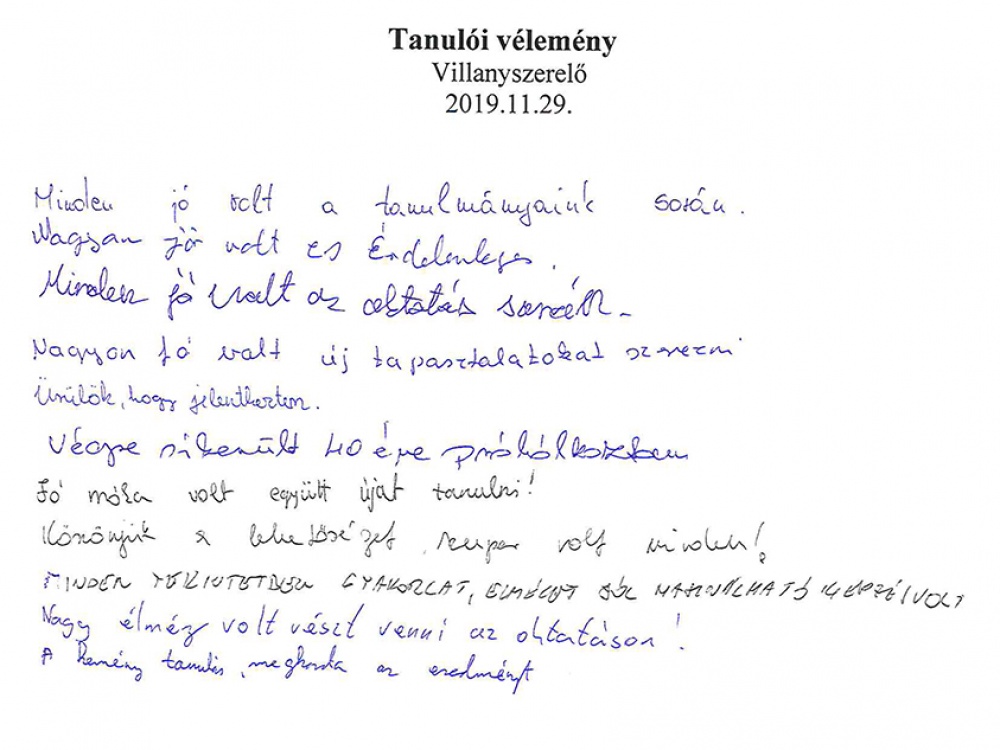 Tanulói vélemény
Villanyszerelő
2019.11.29.
Minden jó volt a tanulmányaink során.
Nagyon jó volt es Érdekes.
Minden jó volt az oktatás során.
Nagyon jó volt új tapasztalatokat szerezni
Örülök, hogy jelentkeztem.
Végre sikerült 40 éve próbálkoztam
Jó móka volt együtt újat tanulni!
Köszönjük a lehetőséget, szuper volt minden!
MINDEN TEKINTETBEN GYAKORLAT, ELMÉLET JÓL HASZNÁLHATÓ KÉPZÉS VOLT
Nagy élmény volt részt venni az oktatáson!
A Kemény tanulás, meghozta az eredményt